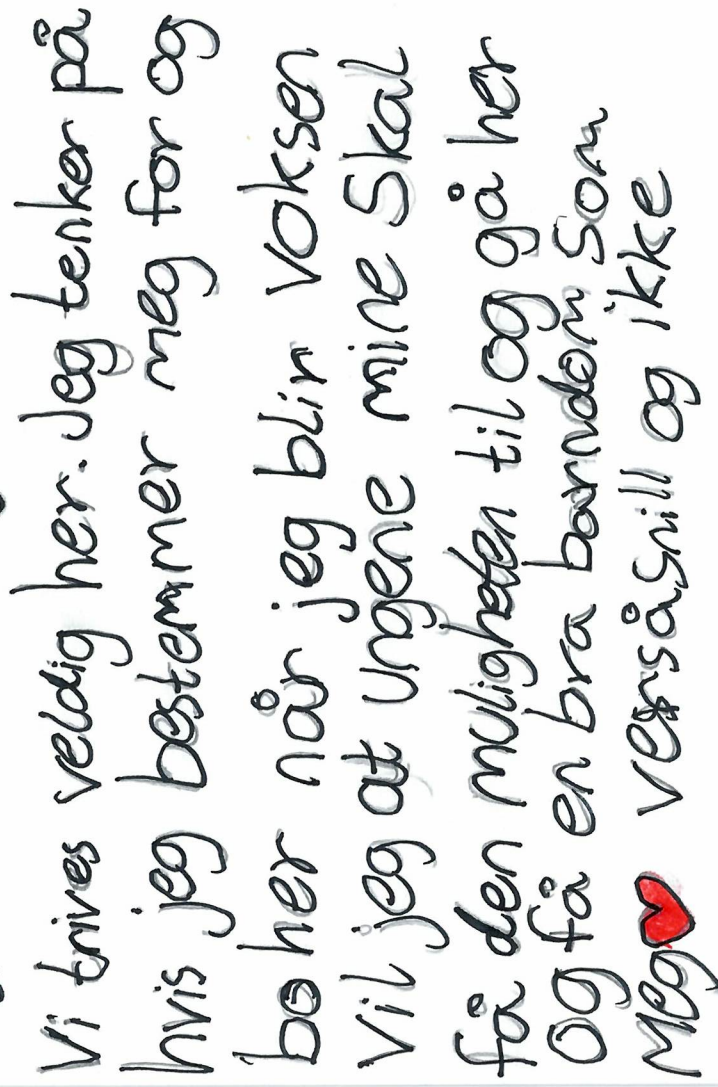 Vi trives veldig her. Jeg tenker på
hvis jeg bestemmer meg for og
bo her når jeg blir voksen
Vil jeg at ungene mine Skal
få den muligheten til og gå her
og få en bra barndom Som
Meg værsåsnill og ikke